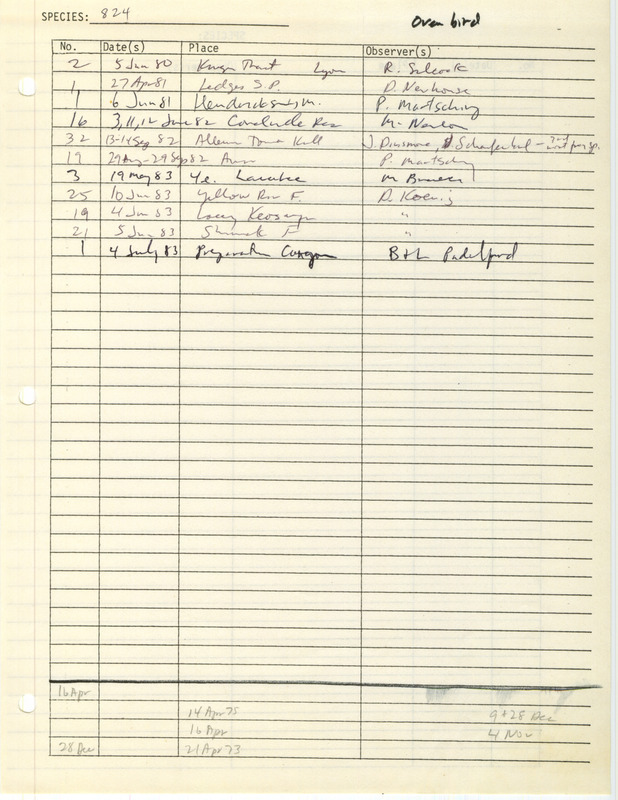 SPECIES: 824 Oven bird
No. Date(s) Place Observer(s)
2 5 Jun 80 Lyon R. Silcock
1 27 Apr 81 Ledges S.P. D. Newhouse
1 6 Jun 81 M. P. Martsching
16 3, 11, 12 June 82 Res
32 13-14 Sep 82 Tower Kill J. Dinsmore,
19 29 Aug-29 Sep 82 Ames P. Martsching
3 19 May 83 M
25 10 Jun 83 Yellow Riv F. D. Koenig
19 4 Jun 83 Lacey Keosauqua "
21 5 Jun 83 Shimek F "
1 4 July 83 Preparation Canyon B+L Padelford
16 Apr
14 Apr 75 9+28 Dec
16 Apr 4 Nov
28 Dec 21 Apr 73